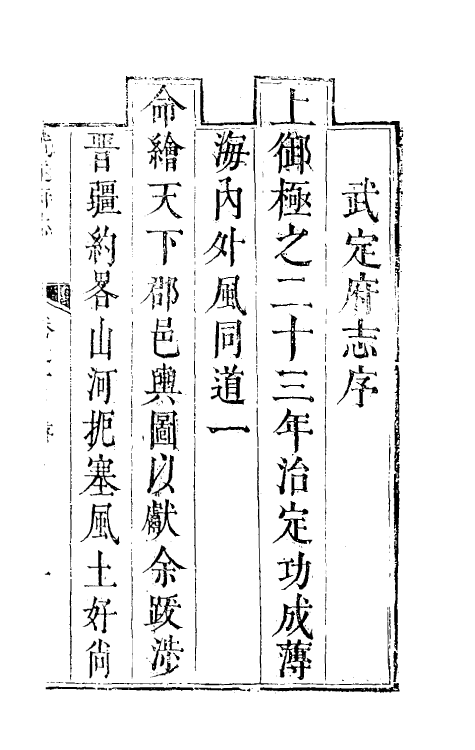 武定府志序
上御極之二十三年治定功成薄
海內外風同道一
命繪天下郡邑輿圖以獻余䟦涉
晋疆約畧山河扼塞風土好尚